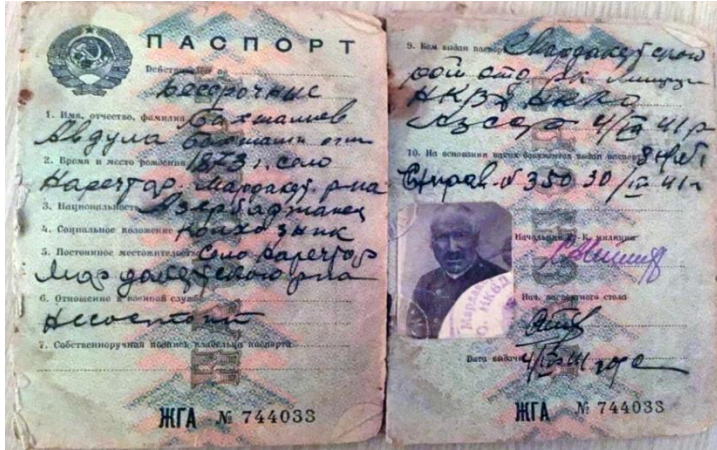 ПАСПОРТ
Действителен по
Бессрочние
1. Имя, отчество, фамилия Бахшалиев
Авдула Бахшали оглы
2. Время и место рождения 1873 г. село
Нарештар. Мардакерт. р-на
3. Национальность Азербаджанец
4. Социальное положение колхозник
5. Постоянное местожительство село Нарештар
Мардакертского р-на
6. Отношение к военной службе
Несостоит
7. Собственноручная подпись владельца паспорта
ЖГА № 744033
9. Кем выдан паспорт Мардакертским
НКВД НКАО
АзССР 4/IV 41 г
10. На основании каких документов выдан паспорт
Справ. № 350 30/ 41 г
Начальник Р. К. милиции
Нач. паспортного стола
Дата выдачи 4/IV 41 года
ЖГА № 744033